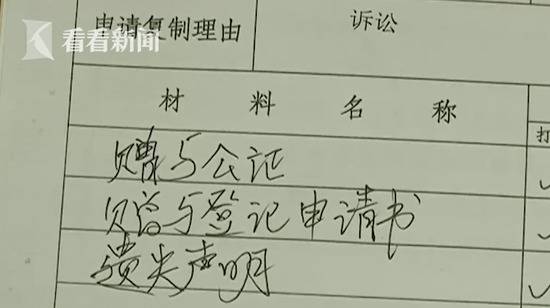 看看新闻
申请复制理由 诉讼
材料名称
打
赠与公证
赠与登记申请书
遗失声明